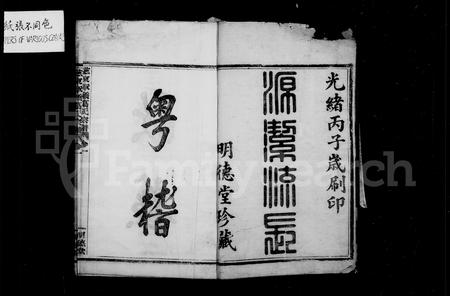 紙張不同色
PAPERS OF VARIOUS COLOR
光緒丙子歲刷印
源潔流長
明德堂珍藏
粤稽
FamilySearch